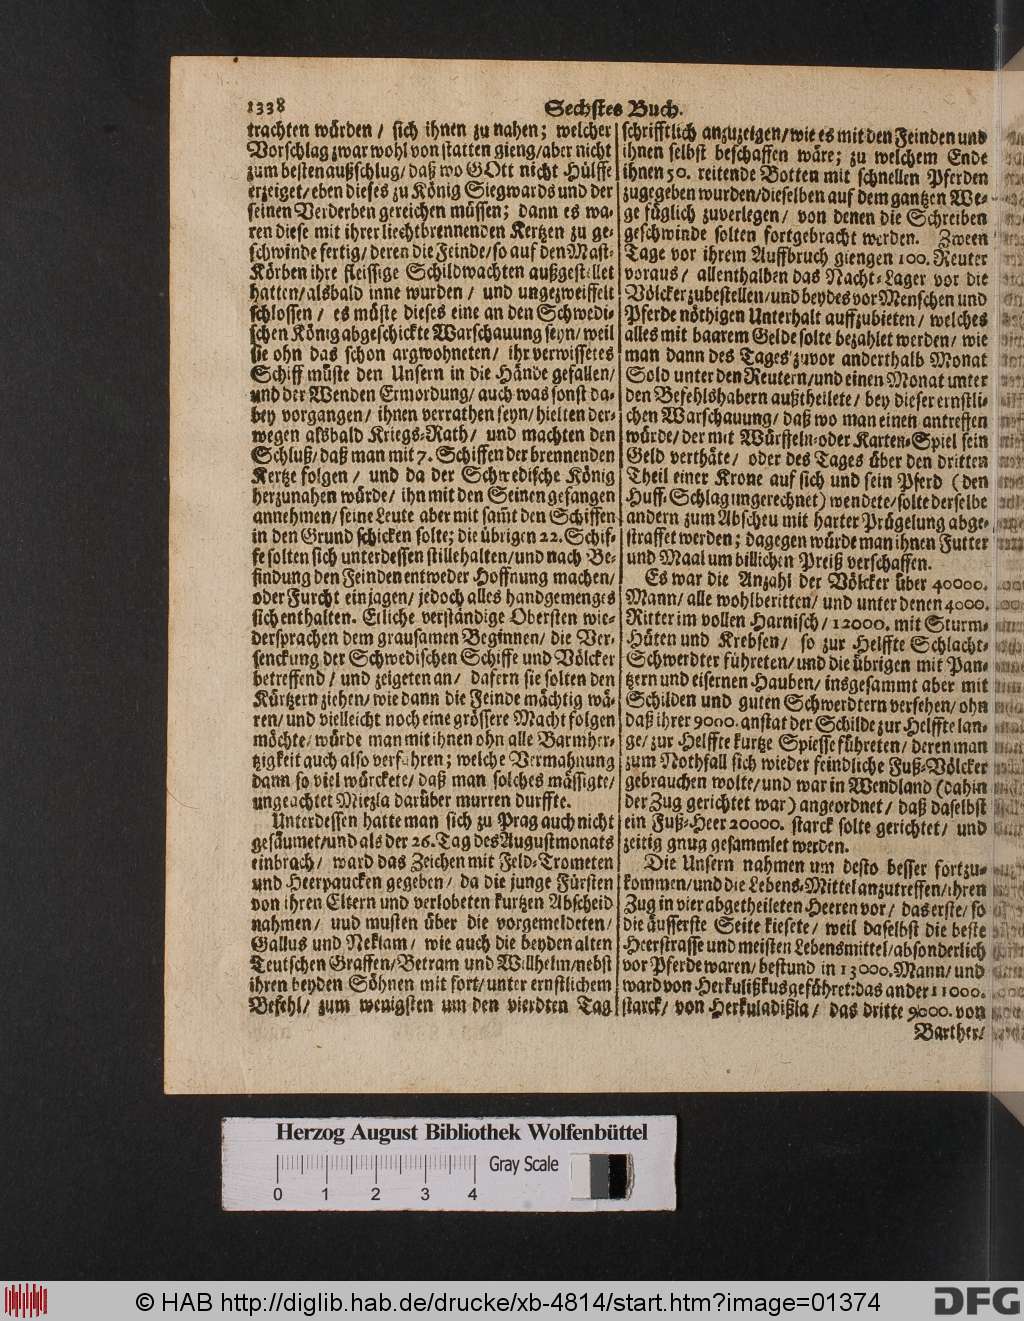 1338
Sechstes Buch.
trachten würden / sich ihnen zu nahen; welcher
Vorschlag zwar wohl von statten gieng/aber nicht
zum besten außschlug/ daß wo GOtt nicht Hülffe
erzeiget/ eben dieses zu König Siegwards und der
seinen Verderben gereichen müssen; dann es wa-
ren diese mit ihrer liechtbrennenden Kertzen zu ge-
schwinde fertig/ deren die Feinde/ so auf den Mast-
Körben ihre fleissige Schildwachten außgestellet
hatten/alsbald inne wurden / und ungezweiffelt
schlossen / es müste dieses eine an den Schwedi-
schen König abgeschickte Warschauung seyn/ weil
sie ohn das schon argwohneten/ ihr verwissetes
Schiff müste den Unsern in die Hände gefallen/
und der Wenden Ermordung/ auch was sonst da-
bey vorgangen/ ihnen verrathen seyn/ hielten der-
wegen alsbald Kriegs-Rath/ und machten den
Schluß/ daß man mit 7. Schiffen der brennenden
Kertze folgen/ und da der Schwedische König
herzunahen würde/ ihn mit den Seinen gefangen
annehmen/ seine Leute aber mit sam̃t den Schiffen
in den Grund schicken solte; die übrigen 22. Schif-
fe solten sich unterdessen stille halten/ und nach Be-
findung den Feinden entweder Hoffnung machen/
oder Furcht einjagen/ jedoch alles handgemenges
sich enthalten. Etliche verständige Obersten wie-
dersprachen dem grausamen Beginnen/ die Ver-
senckung der Schwedischen Schiffe und Völcker
betreffend/ und zeigeten an/ dafern sie solten den
Kürtzern ziehen/ wie dann die Feinde mächtig wä-
ren/ und vielleicht noch eine grössere Macht folgen
möchte/ würde man mit ihnen ohn alle Barmher-
tzigkeit auch also verfahren; welche Vermahnung
dann so viel würckete/ daß man solches mässigte/
ungeachtet Miezla darüber murren durffte.
Unterdessen hatte man sich zu Prag auch nicht
gesäumet/und als der 26. Tag des Augustmonats
einbrach/ ward das Zeichen mit Feld-Trometen
und Heerpaucken gegeben/ da die junge Fürsten
von ihren Eltern und verlobeten kurtzen Abscheid
nahmen/ uud musten über die vorgemeldeten/
Gallus und Neklam/ wie auch die beyden alten
Teutschen Graffen/ Betram und Wilhelm/nebst
ihren beyden Söhnen mit fort/ unter ernstlichem
Befehl/ zum wenigsten um den vierdten Tag
schrifftlich anzuzeigen/ wie es mit den Feinden und
ihnen selbst beschaffen wäre; zu welchem Ende
ihnen 50. reitende Botten mit schnellen Pferden
zugegeben wurden/dieselben auf dem gantzen We-
ge füglich zuverlegen/ von denen die Schreiben
geschwinde solten fortgebracht werden. Zween
Tage vor ihrem Auffbruch giengen 100. Reuter
voraus/ allenthalben das Nacht-Lager vor die
Völcker zubestellen/und beydes vor Menschen und
Pferde nöthigen Unterhalt auffzubieten/ welches
alles mit baarem Gelde solte bezahlet werden/ wie
man dann des Tages zuvor anderthalb Monat
Sold unter den Reutern/und einen Monat unter
den Befehlshabern außtheilete/ bey dieser ernstli-
chen Warschauung/ daß wo man einen antreffen
würde/ der mit Würffeln-oder Karten-Spiel sein
Geld verthäte/ oder des Tages über den dritten
Theil einer Krone auf sich und sein Pferd (den
Huff-Schlag ungerechnet) wendete/ solte derselbe
andern zum Abscheu mit harter Prügelung abge-
straffet werden; dagegen würde man ihnen Futter
und Maal um billichen Preiß verschaffen.
Es war die Anzahl der Völcker über 40000.
Mann/ alle wohlberitten/ und unter denen 4000.
Ritter im vollen Harnisch/ 12000. mit Sturm-
Hüten und Krebsen/ so zur Helffte Schlacht-
Schwerdter führeten/ und die übrigen mit Pan-
tzern und eisernen Hauben/ insgesammt aber mit
Schilden und guten Schwerdtern versehen/ ohn
daß ihrer 9000. anstat der Schilde zur Helffte lan-
ge/ zur Helffte kurtze Spiesse führeten/ deren man
zum Nothfall sich wieder feindliche Fuß-Völcker
gebrauchen wolte/ und war in Wendland (dahin
der Zug gerichtet war) angeordnet/ daß daselbst
ein Fuß-Heer 20000. starck solte gerichtet/ und
zeitig gnug gesammlet werden.
Die Unsern nahmen um desto besser fortzu-
kommen/ und die Lebens-Mittel anzutreffen/ihren
Zug in vier abgetheileten Heeren vor/ das erste/ so
die äusserste Seite kiesete/ weil daselbst die beste
Heerstrasse und meisten Lebensmittel/absonderlich
vor Pferde waren/ bestund in 13000. Mann/ und
ward von Herkulißkus geführet: das ander 11000.
starck/ von Herkuladißla/ das dritte 9000. von
Barther/
Herzog August Bibliothek Wolfenbüttel
Gray Scale
0 1 2 3 4
© HAB http://diglib.hab.de/drucke/xb-4814/start.htm?image=01374
DFG